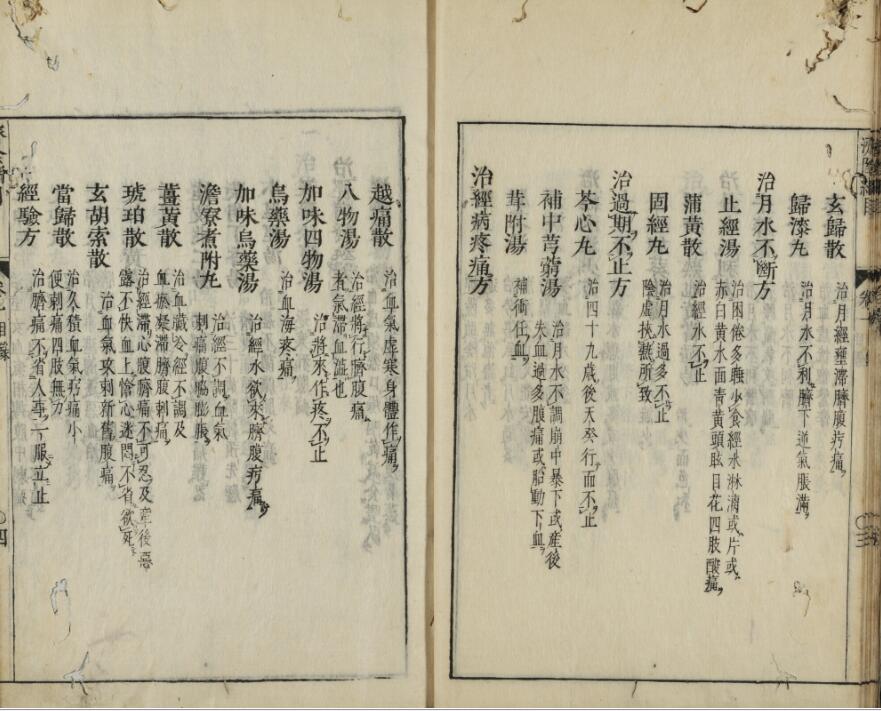 玄歸散 治月經壅滯臍腹㽲痛
歸漆丸 治月水不利臍下逆氣脹滿
治月水不斷方
止經湯 治困倦多睡少食經水淋漓或片或
赤白黄水面青黄頭眩目花四肢酸痛
蒲黄散 治經水不止
固經丸 治月水過多不止
陰虛挾熱所致
治過期不止方
芩心丸 治四十九歲後天癸行而不止
補中芎藭湯 治月水不調崩中暴下或產後
失血過多腹痛或胎動下血
茸附湯 補衝任血
治經病疼痛方
越痛散 治血氣虛寒身體作痛
八物湯 治經將行臍腹痛
者氣滯血澁也
加味四物湯 治將來作疼不止
烏藥湯 治血海疼痛
加味烏藥湯 治經水欲來臍腹㽲痛
澹寮煮附丸 治經不調血氣
刺痛腹脇膨脹
薑黄散 治血臟冷經不調及
血瘀凝滯臍腹刺痛
琥珀散 治經滯心腹臍痛不可忍及產後惡
露不快血上搶心迷悶不省欲死
玄胡索散 治血氣攻刺新舊腹痛
當歸散 治久積血氣㽲痛小
便刺痛四肢無力
經驗方 治臍痛不省人事一服立止
三
四